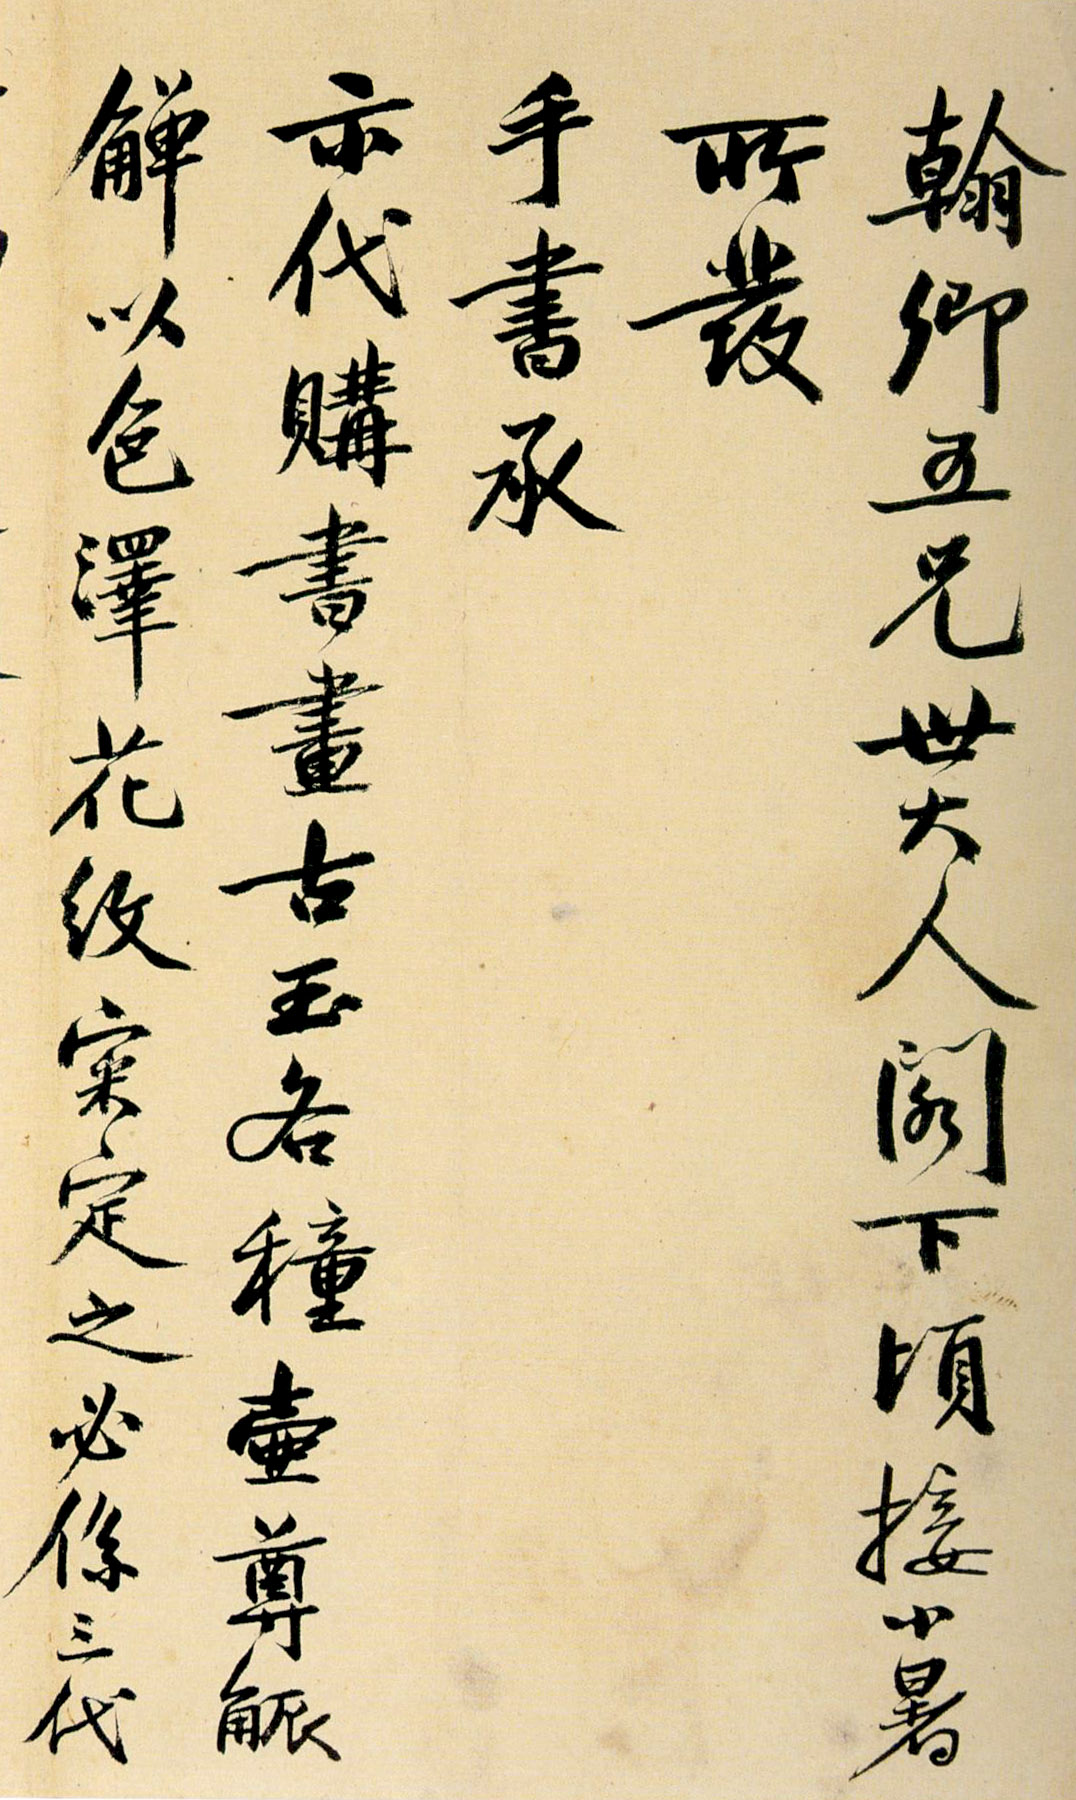 翰卿五兄世大人閣下頃接小暑
所發
手書承
示代購書畫古玉各種壺尊觚
觶以色澤花紋宷定之必係三代